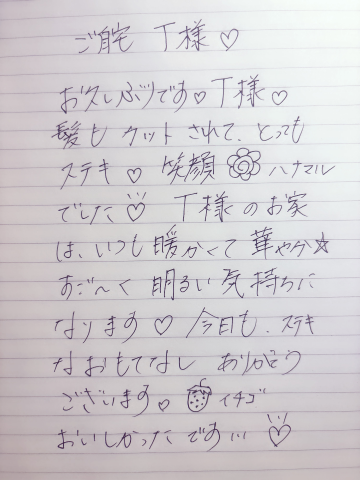 ご自宅 T様♡
お久しぶりです♡T様♡
髪もカットされて、とっても
ステキ♡ 笑顔 ハナマル
でした♡ T様のお家
は、いつも暖かくて華やか☆
すご〜く明るい気持ちに
なります♡ 今日も、ステキ
なおもてなし ありがとう
ございます。イチゴ
おいしかったです… ♡